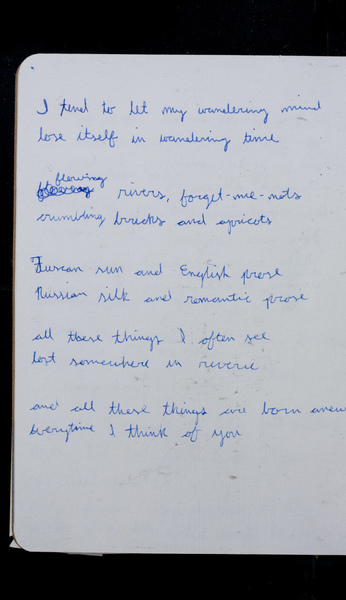 I tend to let my wandering mind
lose itself in wandering time
flowing rivers, forget-me-nots
crumbling bricks and apricots
Tuscan sun and English prose
Russian silk and romantic prose
all these things I often see
lost somewhere in reverie
and all these things are born anew
everytime I think of you